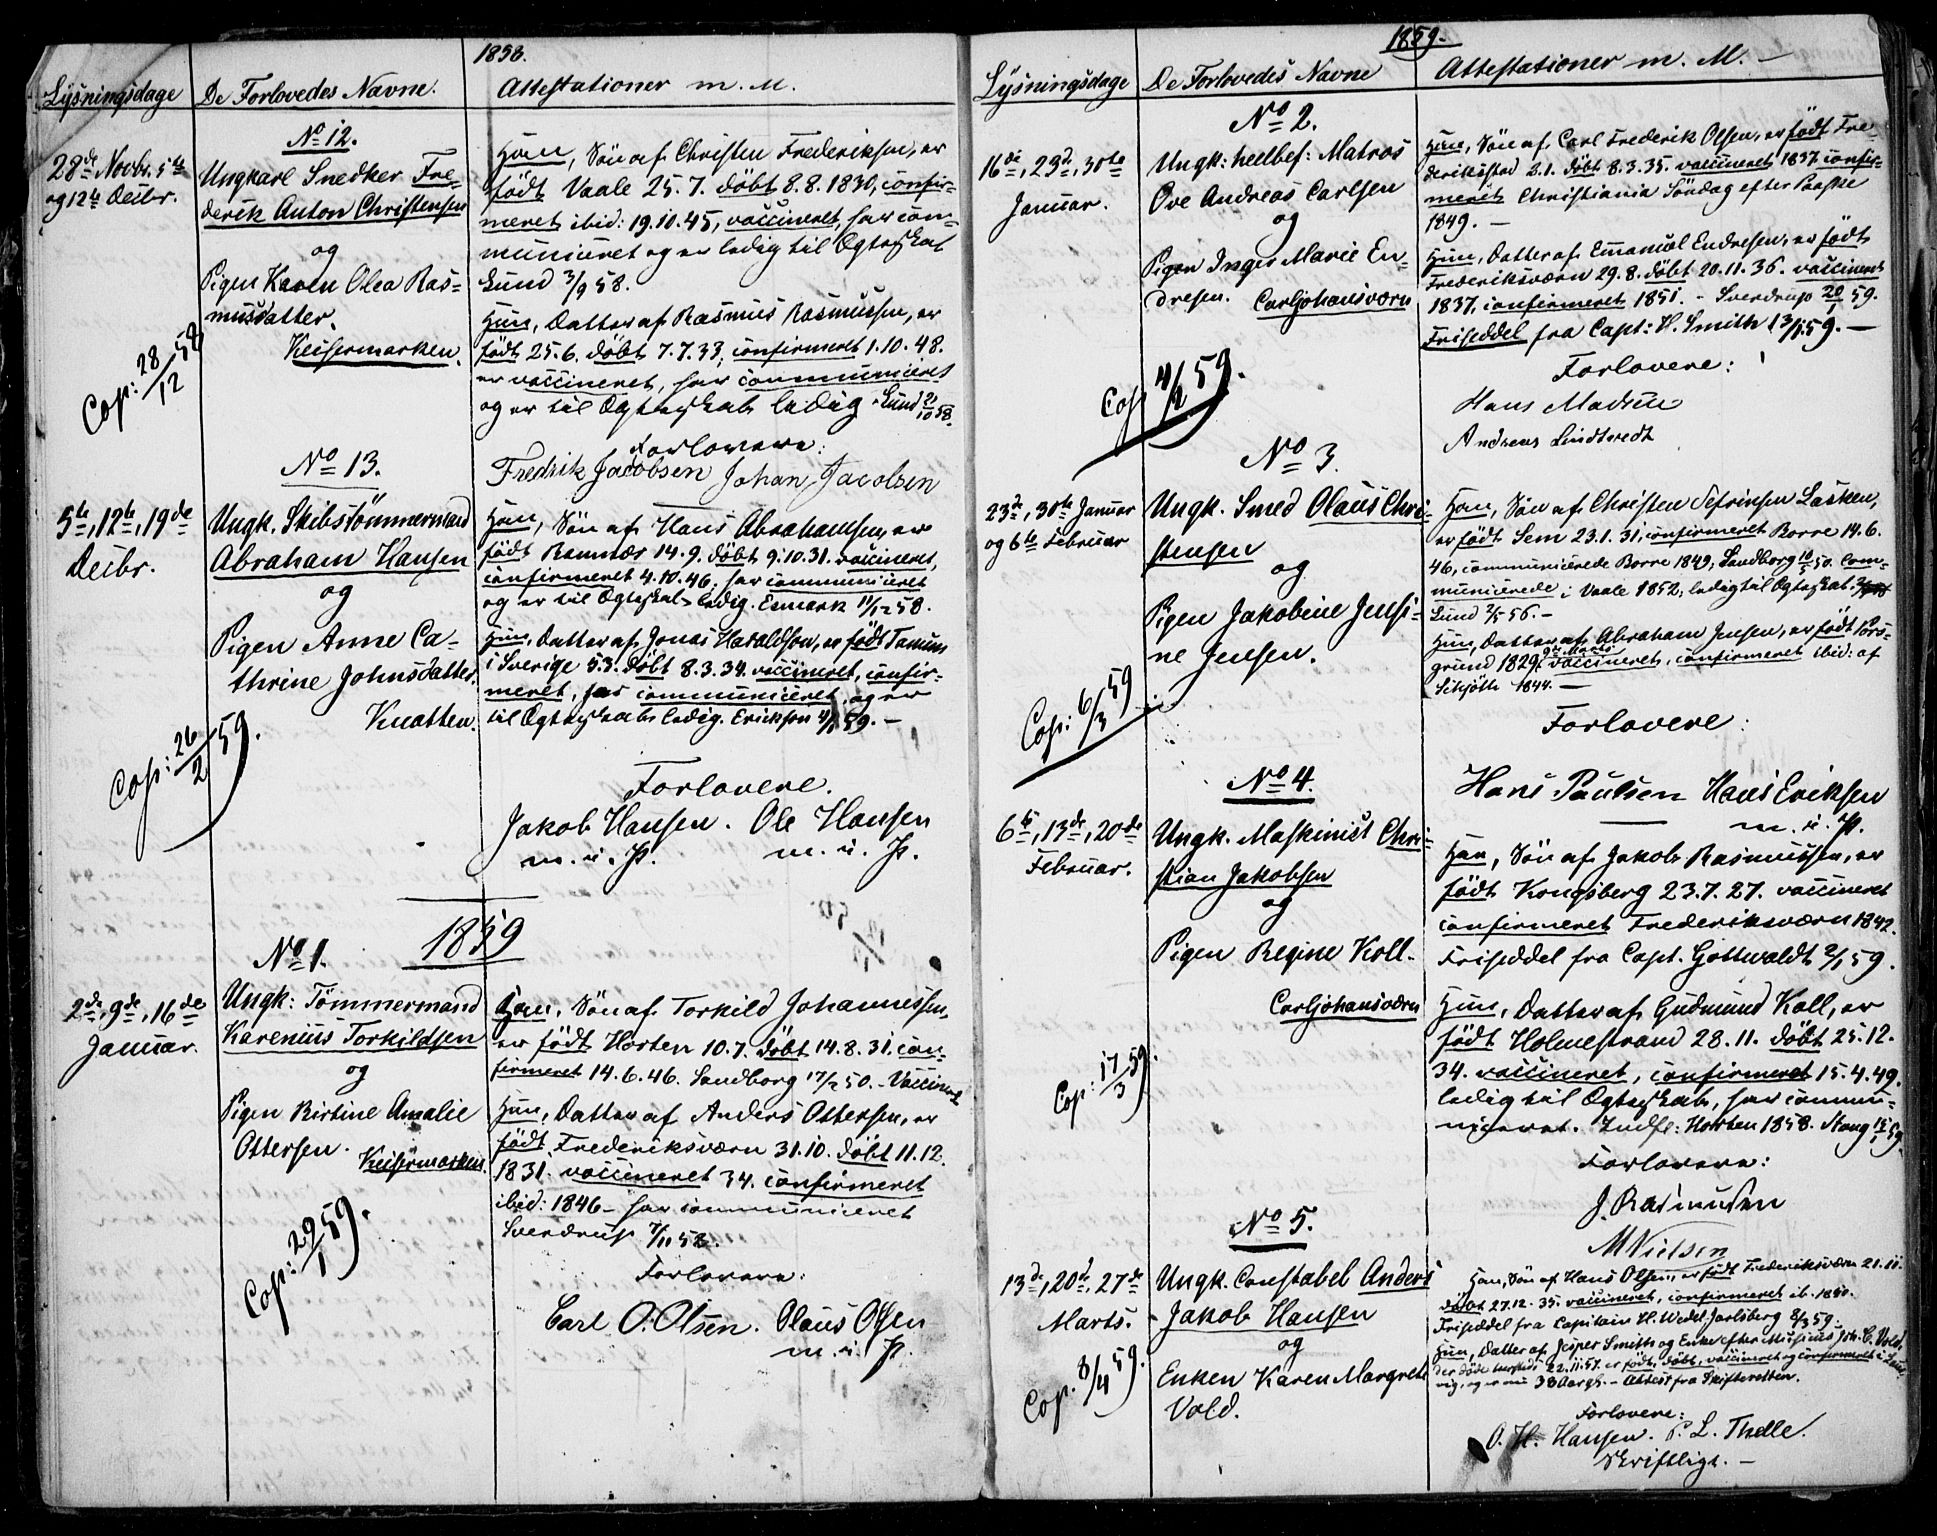 1858.
Lysningsdage
De Forlovedes Navne.
Attestationer m. M.
No 12.
28de Novbr. 5te
og 12te Decbr.
Ungkarl Snedker Fre-
derik Anton Christensen
og
Pigen Karen Olea Ras-
musdatter.
Keisermarken.
Cop: 28/12 58
Han, Søn af Christen Frederiksen, er
født Vaale 25.7. døbt 8.8.1830, confir-
meret ibid: 19.10.45, vaccineret, har com-
municeret og er ledig til Ægteskab
Lund 3/9 58.
Hun, Datter af Rasmus Rasmussen, er
født 25.6. døbt 7.7.33, confirmeret 1.10.48.
er vaccineret, har communiceret
og er til Ægteskab ledig. Lund 2/10 58.
Forlovere:
Fredrik Jacobsen Johan Jacobsen
No 13.
5te, 12te, 19de
Decbr.
Ungk. Skibstømmermand
Abraham Hansen
og
Pigen Anne Ca-
thrine Johnsdatter.
Knatten.
Cop: 26/2 59.
Han, Søn af Hans Abrahamsen, er
født Ramnæs 14.9. døbt 9.10.31. vaccineret,
confirmeret 4.10.46, har communiceret
og er til Ægteskab ledig. Esmark 11/12 58.
Hun, Datter af Jonas Haraldson, er født Tanum
i Sverige 5.3. døbt 8.3.34. vaccineret, confir-
meret, har communiceret og er
til Ægteskab ledig. Erickson 4/1 59. –
Forlovere.
Jakob Hansen. Ole Hansen
m. i. P. m. i. P.
1859
No 1.
2de, 9de, 16de
Januar.
Ungk: Tømmermand
Karenius Torkildsen
og
Pigen Kirstine Amalie
Ottersen.
Keisermarken.
Cop: 29/1 59.
Han, Søn af Torkild Johannessen,
er født Horten 10.7. døbt 14.8.31. con-
firmeret 14.6.46. Sandborg 17/2 50. – Vaccineret
Hun, Datter af Anders Ottersen, er
født Frederiksværn 31.10. døbt 11.12.
1831. vaccineret 34. confirmeret
ibid: 1846 – har communiceret
Sverdrup 7/11 58.
Forlovere:
Carl O. Olsen. Olaus Olsen
m. i. P.
1859.
Lysningsdage
De Forlovedes Navne
Attestationer m. M. –
No 2.
16de, 23de, 30te
Januar.
Ungk: hellbef: Matros
Ove Andreas Carlsen
og
Pigen Inger Marie En-
dresen. Carljohansværn
Cop 4/2 59.
Han, Søn af Carl Frederik Olsen, er født Fre-
deriksstad 2.1. døbt 8.3.35. vaccineret 1837. confir-
meret Christiania Søndag efter Paaske
1849. –
Hun, Datter af Emanuel Endresen, er født
Frederiksværn 29.8. døbt 20.11.36. vaccineret
1837, confirmeret 1851. – Sverdrup 20/1 59.
Friseddel fra Capt: H. Smith 13/1 59. –
Forlovere:
Hans Madsen
Andreas Lindtvedt
No 3.
23de, 30te Januar
og 6te Februar
Ungk. Smed Olaus Chri-
stensen
og
Pigen Jakobine Jensi-
ne Jensen.
Cop: 6/3 59
Han, Søn af Christen Sefrinsen Lasken,
er født Sem 23.1.31, confirmeret Borre 14.6.
46, communicerede Borre 1849, Sandborg 10/5 50. Com-
municerede i Vaale 1852, ledig til Ægteskab.
Lund 2/5 56. –
Hun, Datter af Abraham Jensen, er født Pors-
grund 1829, vaccineret, confirmeret ibid: af
Schjøtt 1844. –
Forlovere:
Hans Paulsen Hans Eriksen
m. i. P.
No 4.
6te, 13de, 20de
Februar.
Ungk. Maskinist Chri-
stian Jakobsen
og
Pigen Regine Koll.
Carljohansværn
Cop: 17/3 59.
Han, Søn af Jakob Rasmussen, er
født Kongsberg 23.7.27. vaccineret
confirmeret Frederiksværn 1842.
Friseddel fra Capt. Gottwaldt 2/1 59.
Hun, Datter af Gudmund Koll, er
født Holmestrand 28.11. døbt 25.12.
34. vaccineret, confirmeret 15.4.49.
ledig til Ægteskab, har commu-
niceret. Indfl: Horten 1858. Stang 15/1 59.
Forlovere:
J. Rasmussen
M Nielsen
No 5.
13de, 20de, 27de
Marts.
Ungk. Constabel Anders
Jakob Hansen
og
Enken Karen Margrete
Vold.
Cop. 8/4 59.
Han, Søn af Hans Olsen, er født Frederiksværn 21.11.
døbt 27.12.35. vaccineret, confirmeret ib. 1850.
Friseddel fra Capitain H. Wedel Jarlsberg 8/3 59 –
Hun, Datter af Jesper Smith og Enke efter Joh. C. Vold,
der døde 22.11.57. er født, døbt, vaccineret og confirmeret i Laur-
vig, og er nu 38 Aar gl. – Attest fra Skifteretten.
Forlovere:
O. H. Hansen. P. L. Thelle.
Skriftligt. –